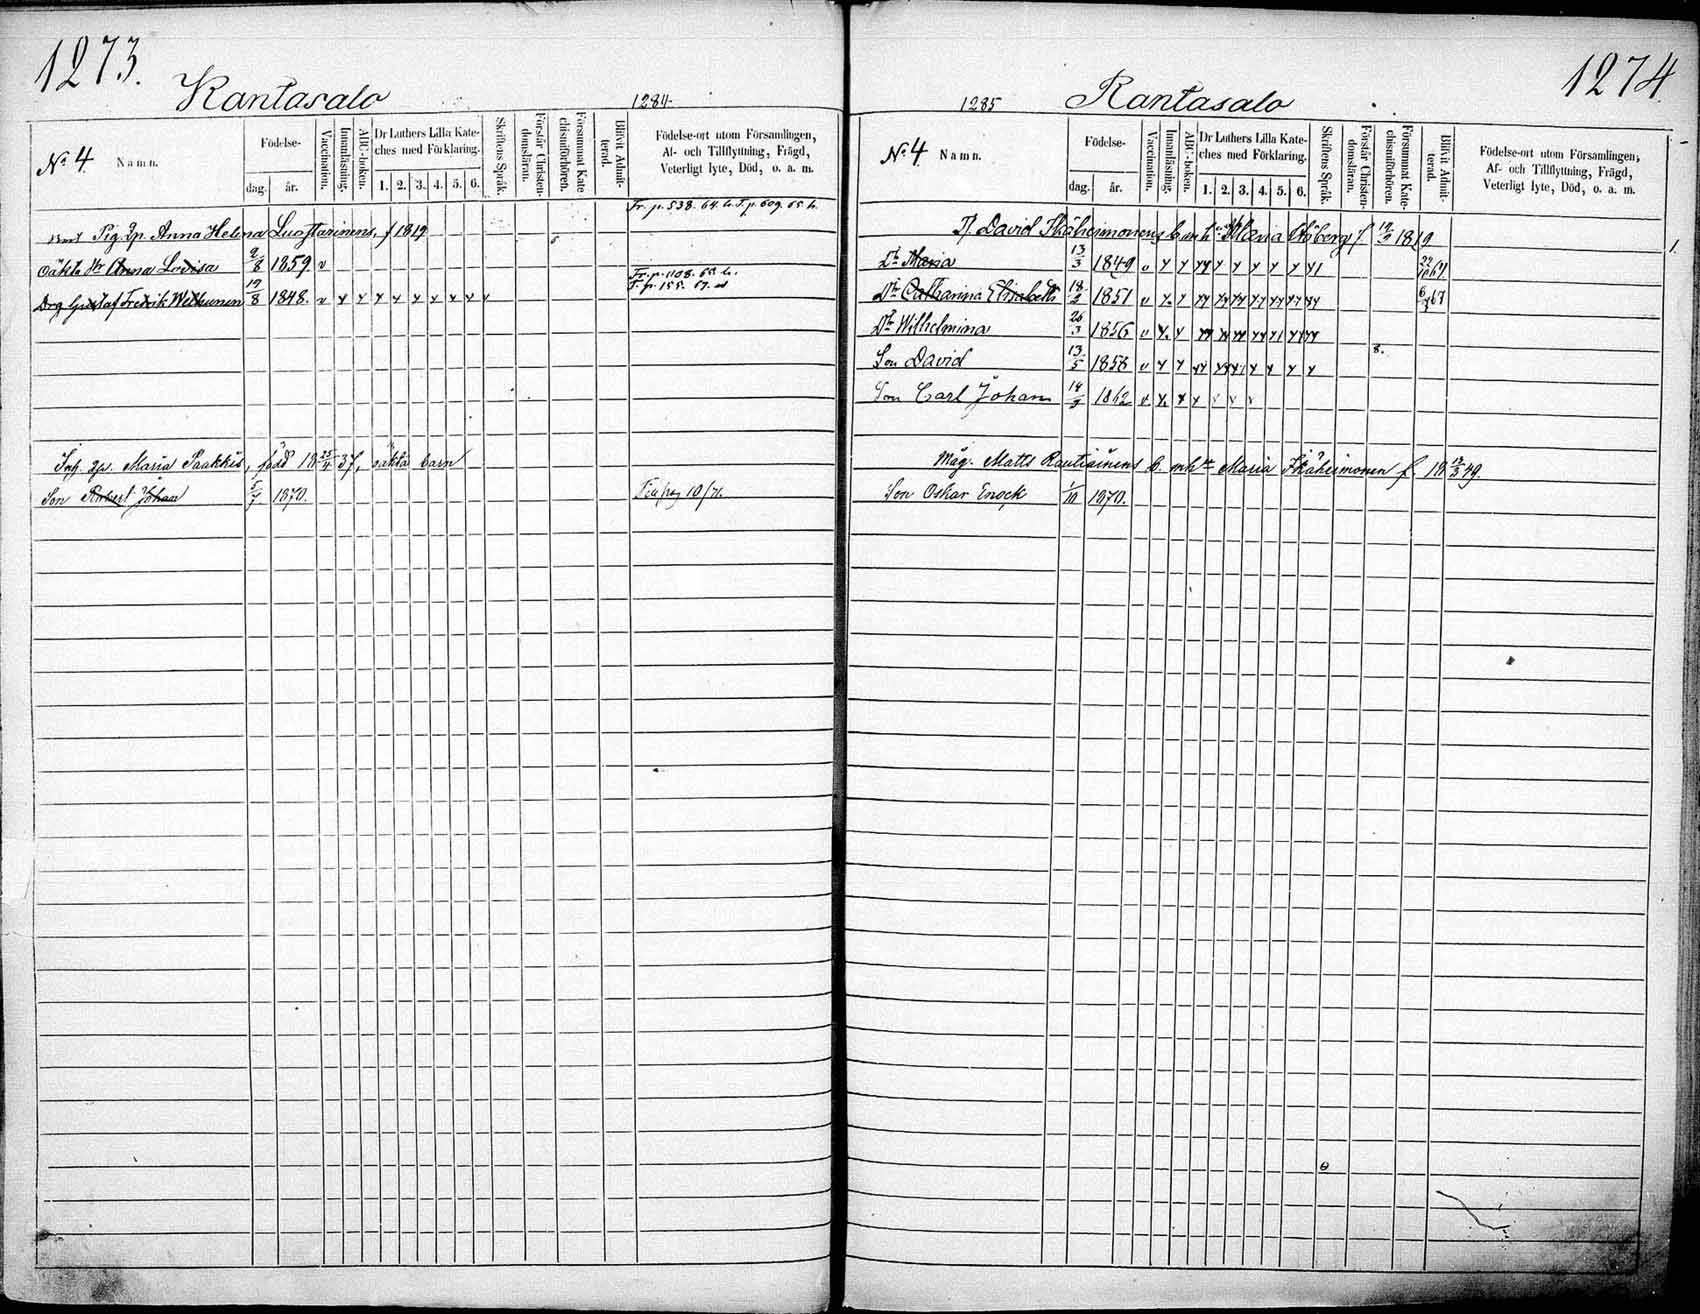 1273.
Rantasalo
1284.
Nº 4
Namn.
Födelse-
dag.
år.
Vaccination.
Innanläsning.
ABC-boken.
Dr Luthers Lilla Kate-
ches med Förklaring.
1. 2. 3. 4. 5. 6.
Skriftens Språk.
Förstår Christen-
domsläran.
Försummat Kate-
chismiförhören.
Blifvit Admit-
terad.
Födelse-ort utom Församlingen,
Af- och Tillflyttning, Frägd,
Veterligt lyte, Död, o. a. m.
Fr. p. 538. 64. h. F. p. 609. 65 h.
Pig. Anna Helena Luostarinens, f 1819
oäkta dtr Anna Lovisa 9/8 1859 v
Fr. p. 1108. 62. h.
F. p. 155. 67.
Drg Gustaf Fredrik Weihunen 19/8 1848.
Inh. Maria Paakkis, född 18 25/4 37, oäkta barn
Son Robert Johan 5/7. 1870.
10/71.
1274.
1285
Rantasalo
Nº 4
Namn.
Födelse-
dag.
år.
Vaccination.
Innanläsning.
ABC-boken.
Dr Luthers Lilla Kate-
ches med Förklaring.
1. 2. 3. 4. 5. 6.
Skriftens Språk.
Förstår Christen-
domsläran.
Försummat Kate-
chismiförhören.
Blifvit Admit-
terad.
Födelse-ort utom Församlingen,
Af- och Tillflyttning, Frägd,
Veterligt lyte, Död, o. a. m.
T. David Ikäheimonens b. m h. Maria Åberg f. 1819
Dr Maria 13/3 1849
Dr Catharina Elisabeth 18/2 1851 67
Dr Wilhelmina 26/3 1856
Son David 13/5 1858 8.
Son Carl Johan 1862
Måg. Matts Rautiainens b. m h. Maria Ikäheimonen f. 18 13/3 49.
Son Oskar Enock 1/10 1870.